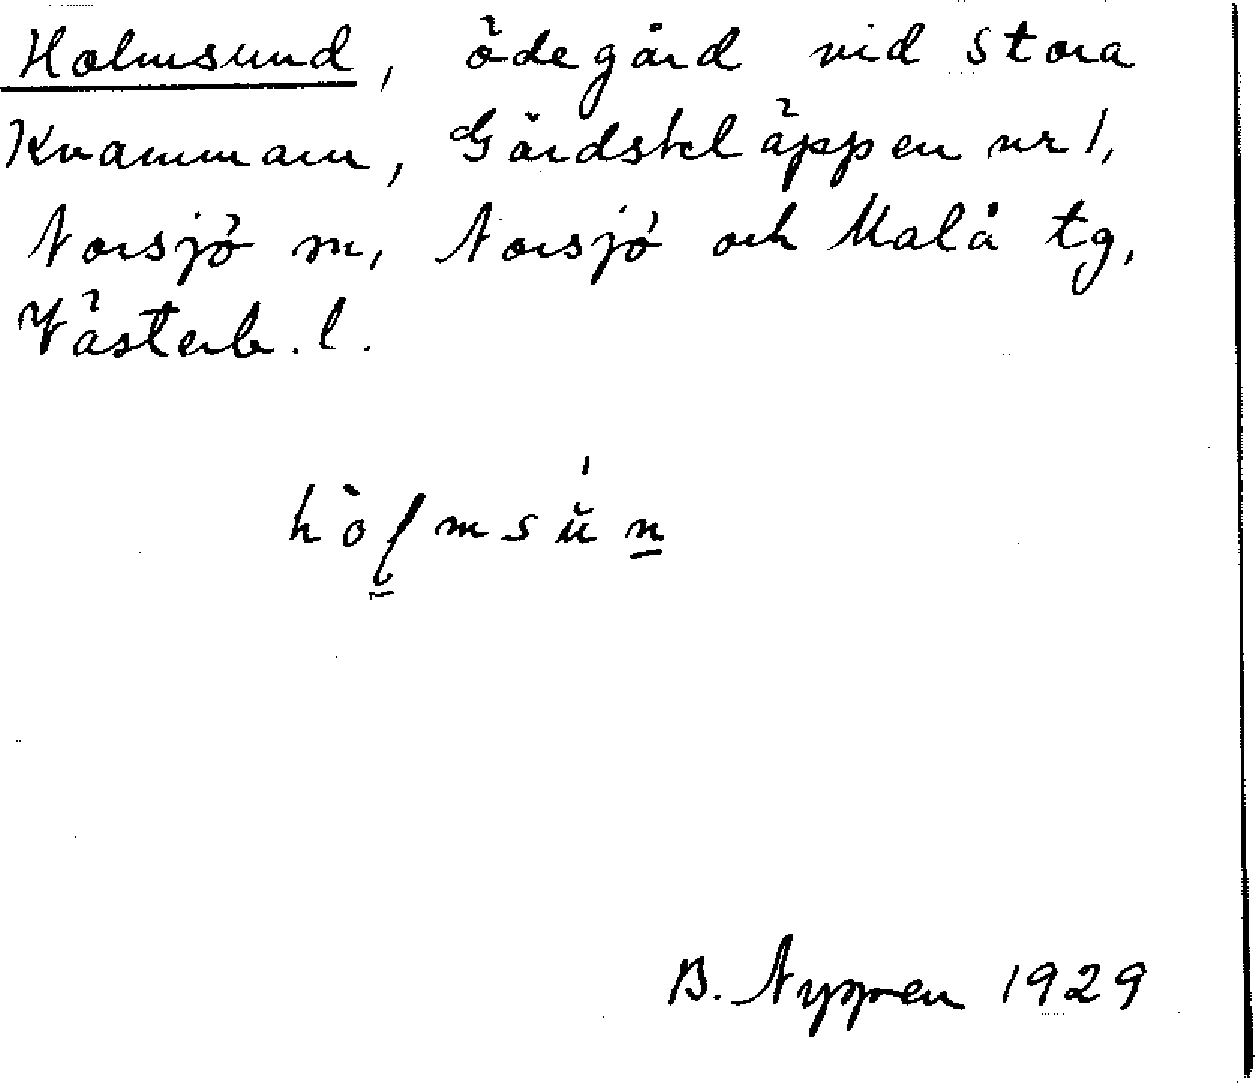 Holmsund, ödegård vid Stora
Kvammarn, Gårdskläppen nr 1,
Norsjö sn, Norsjö och Malå tg,
Västerb. l.
hòɭmsŭ́n̲
B. Nyppen 1929